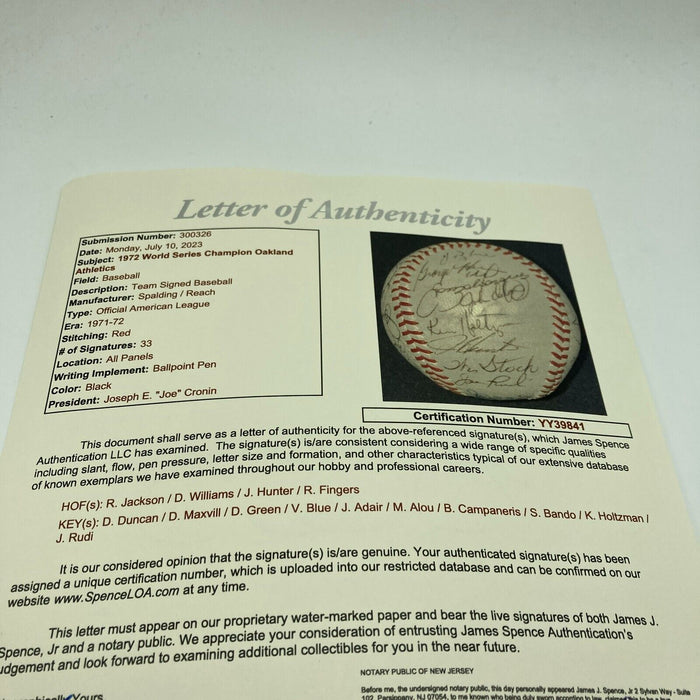 Letter of Authenticity
Submission Number: 300326
Date: Monday, July 10, 2023
Subject: 1972 World Series Champion Oakland
Athletics
Field: Baseball
Description: Team Signed Baseball
Manufacturer: Spalding / Reach
Type: Official American League
Era: 1971-72
Stitching: Red
# of Signatures: 33
Location: All Panels
Writing Implement: Ballpoint Pen
Color: Black
President: Joseph E. "Joe" Cronin
Certification Number: YY39841
This document shall serve as a letter of authenticity for the above-referenced signature(s), which James Spence
Authentication LLC has examined. The signature(s) is/are consistent considering a wide range of specific qualities
including slant, flow, pen pressure, letter size and formation, and other characteristics typical of our extensive database
of known exemplars we have examined throughout our hobby and professional careers.
HOF(s): R. Jackson / D. Williams / J. Hunter / R. Fingers
KEY(s): D. Duncan / D. Maxvill / D. Green / V. Blue / J. Adair / M. Alou / B. Campaneris / S. Bando / K. Holtzman /
J. Rudi
It is our considered opinion that the signature(s) is/are genuine. Your authenticated signature(s) has been
assigned a unique certification number, which is uploaded into our restricted database and can be confirmed on our
website www.SpenceLOA.com at any time.
This letter must appear on our proprietary water-marked paper and bear the live signatures of both James J.
Spence, Jr and a notary public. We appreciate your consideration of entrusting James Spence Authentication's
udgement and look forward to examining additional collectibles for you in the near future.
Yours
NOTARY PUBLIC OF NEW JERSEY
Before me, the undersigned notary public, this day personally appeared James J. Spence, Jr 2 Sylvan Way - Suite
102, Parsippany, NJ 07054, to me known who being duly sworn according to law,